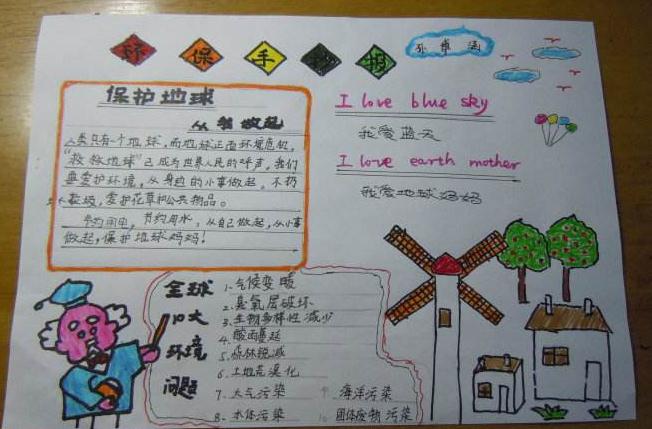 环保手抄报
保护地球
从我做起
人类只有一个地球，而地球正面环境危机，
“救救地球”已成为世界人民的呼声。我们
要爱护环境，从身边的小事做起。不扔
垃圾，爱护花草和公共物品。
节约用电，节约用水，从自己做起，从小事
做起，保护地球妈妈！
I love blue sky
我爱蓝天
I love earth mother
我爱地球妈妈
全球
10大
环境
问题
1.气候变暖
2.臭氧层破坏
3.生物多样性减少
4.酸雨蔓延
5.森林锐减
6.土地荒漠化
7.大气污染
8.水体污染
9.海洋污染
10.固体废物污染